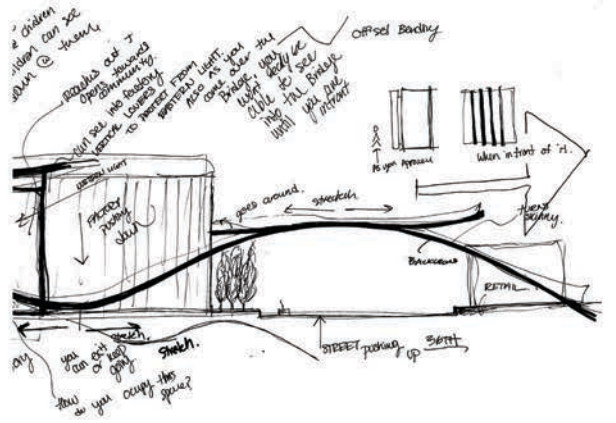 children
children can see
@ them.
Reaches out &
opens towards
community.
can see into factory
VERTICAL LOUVERS
TO PROTECT FROM
EASTERN LIGHT.
ALSO AS you
come over the
Bridge, you
won't really be
able to see
into the Bridge
until you are
infront
Offset Bending
As you Approach
When in front of it.
FACTORY
pushing
down
goes around.
stretch
TURNS
BACKGROUND
RETAIL
stretch.
stretch.
you
can exit
or keep
going
How
do you occupy this
space?
STREET pushing
up
36TH